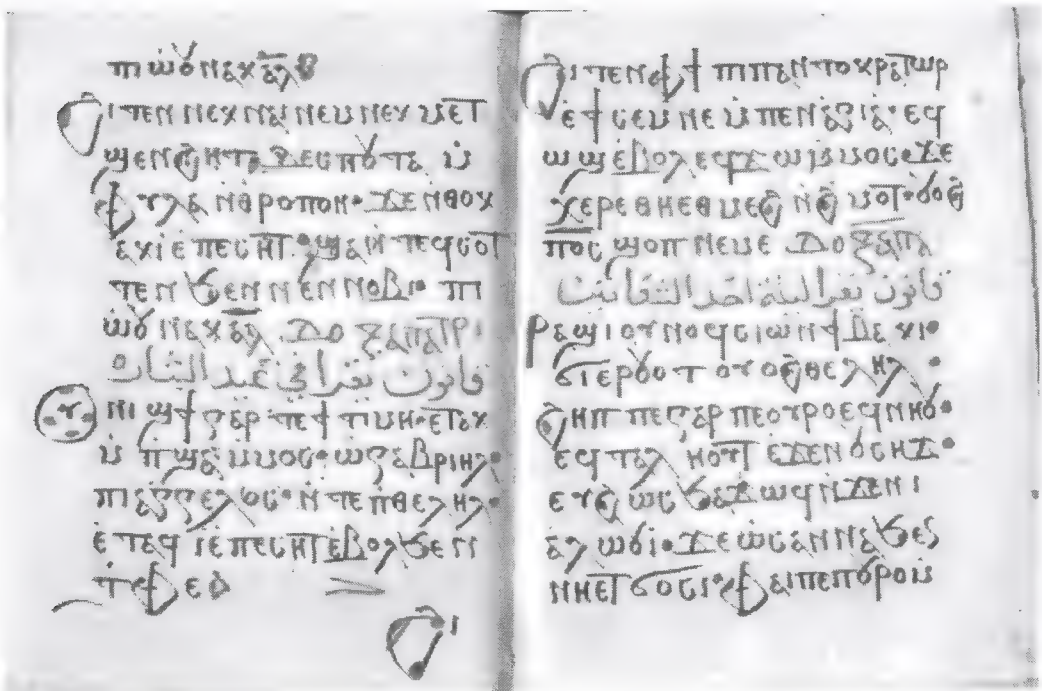 ⲡⲓⲱⲟⲩ ⲛⲁⲭ ⲁⲗ
ϩⲓⲧⲉⲛ ⲛⲉⲭⲛⲁⲓ ⲛⲉⲙ ⲛⲉⲭⲙⲉⲧ
ϣⲉⲛϩⲏⲧ ⲇⲉⲥⲡⲟⲩⲧⲁ ⲙ̀
ⲫⲩⲗⲁⲛⲑⲣⲟⲡⲟⲛ· ϫⲉ ⲛⲑⲟⲭ
ⲁⲭⲓ ⲉ̀ⲡⲉⲥⲏⲧ· ϣⲁⲛ̀ⲧⲉϥⲥⲟⲧ
ⲧⲉⲛ ϧⲉⲛ ⲛⲉⲛⲛⲟⲃⲓ· ⲡⲓ
ⲱⲟⲩ ⲛⲁⲭ ⲁⲗ ⲇⲟⲝⲁⲡⲁⲧⲣⲓ
قانون يقرا في عيد البشاره
ⲟⲩⲛⲓϣϯ ⲅⲁⲣ ⲡⲉ ϯⲧⲓⲙⲏ· ⲉⲧⲁⲭ
ⲙ̀ⲡϣⲁ ⲙ̀ⲙⲟⲥ· ⲱ ⲅⲁⲃⲣⲓⲏⲗ·
ⲡⲓⲁⲅⲅⲉⲗⲟⲥ· ⲛ̀ⲧⲉ ⲡⲑⲉⲗⲏⲗ·
ⲉ̀ⲧⲁϥⲓ ⲉ̀ⲡⲉⲥⲏⲧ ⲉ̀ⲃⲟⲗ ϧⲉⲛ
ⲧ̀ⲫⲉ
ϩⲓ
ϩⲓⲧⲉⲛ ⲫϯ ⲡⲓⲡⲁⲛⲧⲟⲭⲣⲁⲧⲱⲣ
ⲉ̀ϯⲥⲉⲙⲛⲉ ⲙ̀ⲡⲉⲛⲁϩⲓⲁ· ⲉϥ
ⲱϣ ⲉ̀ⲃⲟⲗ ⲉϥϫⲱ ⲙ̀ⲙⲟⲥ ϫⲉ
ⲭⲉⲣⲉ ⲑⲏⲉⲑⲙⲉϩ ⲛ̀ϩⲙⲟⲧ· ⲟⲩⲟϩ
ⲡⲟⲥ ϣⲟⲡ ⲛⲉⲙⲉ ⲇⲟⲝⲁⲡⲁ
قانون يقرا ليلة احد الشعانين
ⲣⲁϣⲓ ⲟⲩⲛⲟϥ ⲥⲓⲱⲛ ϯⲃⲁⲭⲓ·
ϭⲓⲉⲣⲟⲩⲟⲧ ⲟⲩⲟϩ ⲑⲉⲗⲏⲗ·
ϩⲏⲡⲡⲉ ⲅⲁⲣ ⲡⲉⲟⲩⲣⲟ ⲉϥⲛⲏⲟⲩ·
ⲉϥⲧⲁⲗⲏⲟⲩⲧ ⲉϫⲉⲛ ⲟⲩⲥⲏϫ·
ⲉⲩϩⲱⲥ ϧⲁϫⲱϥ ⲛ̀ϫⲉⲛⲓ
ⲁ̀ⲗⲱⲟⲩⲓ· ϫⲉ ⲱⲥⲁⲛⲛⲁ ϧⲉⲛ
ⲛⲏⲉⲧϭⲟⲥⲓ· ⲫⲁⲓ ⲡⲉ ⲡⲟⲩⲣⲟ ⲙ̀